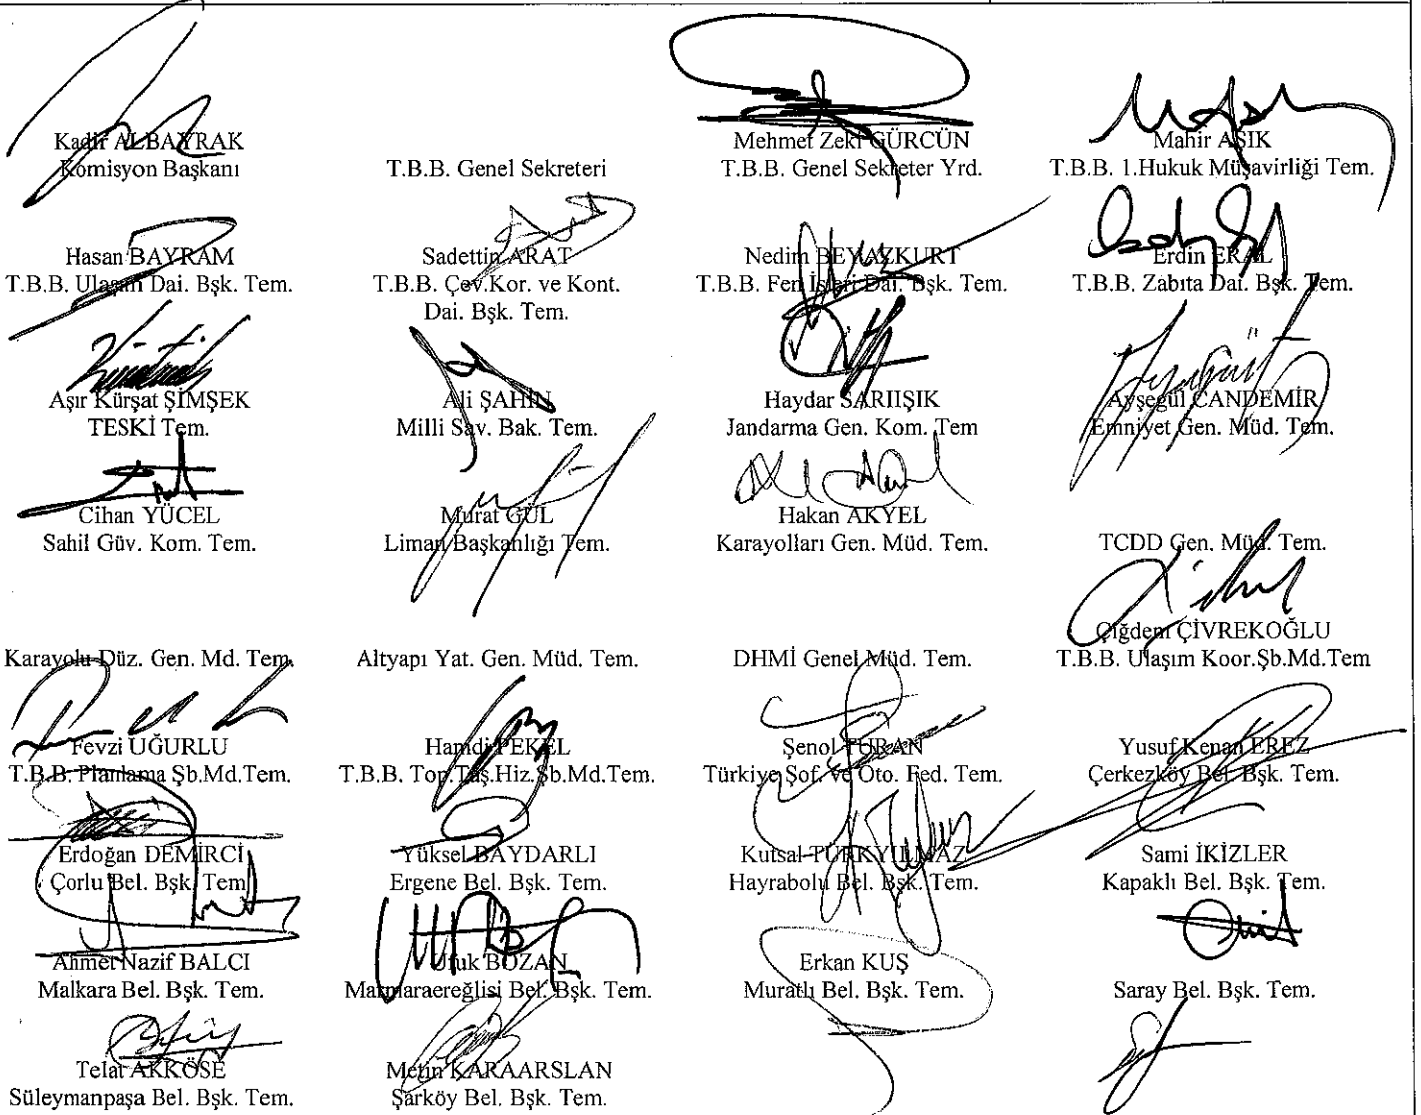 Kadir ALBAYRAK
Komisyon Başkanı
T.B.B. Genel Sekreteri
Mehmet Zeki GÜRCÜN
T.B.B. Genel Sekreter Yrd.
Mahir AŞIK
T.B.B. 1.Hukuk Müşavirliği Tem.
Hasan BAYRAM
T.B.B. Ulaşım Dai. Bşk. Tem.
Sadettin ARAT
T.B.B. Çev.Kor. ve Kont.
Dai. Bşk. Tem.
Nedim BEYAZKURT
T.B.B. Fen İşleri Dai. Bşk. Tem.
Erdin ERAL
T.B.B. Zabıta Dai. Bşk. Tem.
Aşır Kürşat ŞİMŞEK
TESKİ Tem.
Ali ŞAHİN
Milli Sav. Bak. Tem.
Haydar SARIIŞIK
Jandarma Gen. Kom. Tem
Ayşegül CANDEMİR
Emniyet Gen. Müd. Tem.
Cihan YÜCEL
Sahil Güv. Kom. Tem.
Murat GÜL
Liman Başkanlığı Tem.
Hakan AKYEL
Karayolları Gen. Müd. Tem.
TCDD Gen. Müd. Tem.
Karayolu Düz. Gen. Md. Tem.
Altyapı Yat. Gen. Müd. Tem.
DHMİ Genel Müd. Tem.
Çiğdem ÇİVREKOĞLU
T.B.B. Ulaşım Koor.Şb.Md.Tem
Fevzi UĞURLU
T.B.B. Planlama Şb.Md.Tem.
Hamdi PEKEL
T.B.B. Top.Taş.Hiz.Şb.Md.Tem.
Şenol TURAN
Türkiye Şof. ve Oto. Fed. Tem.
Yusuf Kenan EREZ
Çerkezköy Bel. Bşk. Tem.
Erdoğan DEMİRCİ
Çorlu Bel. Bşk. Tem
Yüksel BAYDARLI
Ergene Bel. Bşk. Tem.
Kutsal TÜRKYILMAZ
Hayrabolu Bel. Bşk. Tem.
Sami İKİZLER
Kapaklı Bel. Bşk. Tem.
Ahmet Nazif BALCI
Malkara Bel. Bşk. Tem.
Ufuk BOZAN
Marmaraereğlisi Bel. Bşk. Tem.
Erkan KUŞ
Muratlı Bel. Bşk. Tem.
Saray Bel. Bşk. Tem.
Telat AKKÖSE
Süleymanpaşa Bel. Bşk. Tem.
Metin KARAARSLAN
Şarköy Bel. Bşk. Tem.